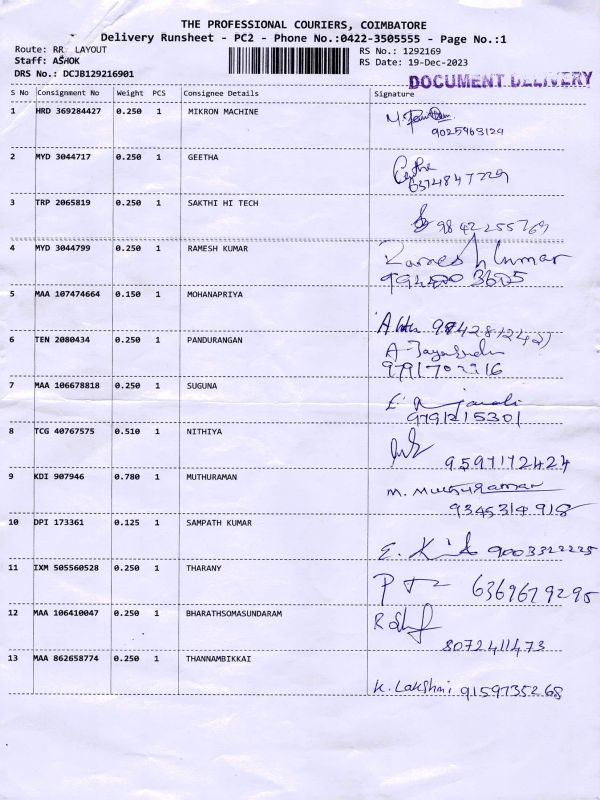 THE PROFESSIONAL COURIERS, COIMBATORE
Delivery Runsheet - PC2 - Phone No.:0422-3505555 - Page No.:1
Route: RR LAYOUT
RS No.: 1292169
Staff: ASHOK
RS Date: 19-Dec-2023
DRS No.: DCJB129216901
DOCUMENT DELIVERY
S No Consignment No Weight PCS Consignee Details Signature
1 HRD 369284427 0.250 1 MIKRON MACHINE
9025963124
2 MYD 3044717 0.250 1 GEETHA
Geetha
6374847229
3 TRP 2065819 0.250 1 SAKTHI HI TECH
9842255769
4 MYD 3044799 0.250 1 RAMESH KUMAR
Ramesh Kumar
5 MAA 107474664 0.150 1 MOHANAPRIYA
6 TEN 2080434 0.250 1 PANDURANGAN
7 MAA 106678818 0.250 1 SUGUNA
9791215301
8 TCG 40767575 0.510 1 NITHIYA
9597172424
9 KDI 907946 0.780 1 MUTHURAMAN
M. Muthuraman
9345314918
10 DPI 173361 0.125 1 SAMPATH KUMAR
9003322225
11 IXM 505560528 0.250 1 THARANY
6369679295
12 MAA 106410047 0.250 1 BHARATHSOMASUNDARAM
8072411473
13 MAA 862658774 0.250 1 THANNAMBIKKAI
K. Lakshmi 9159735268